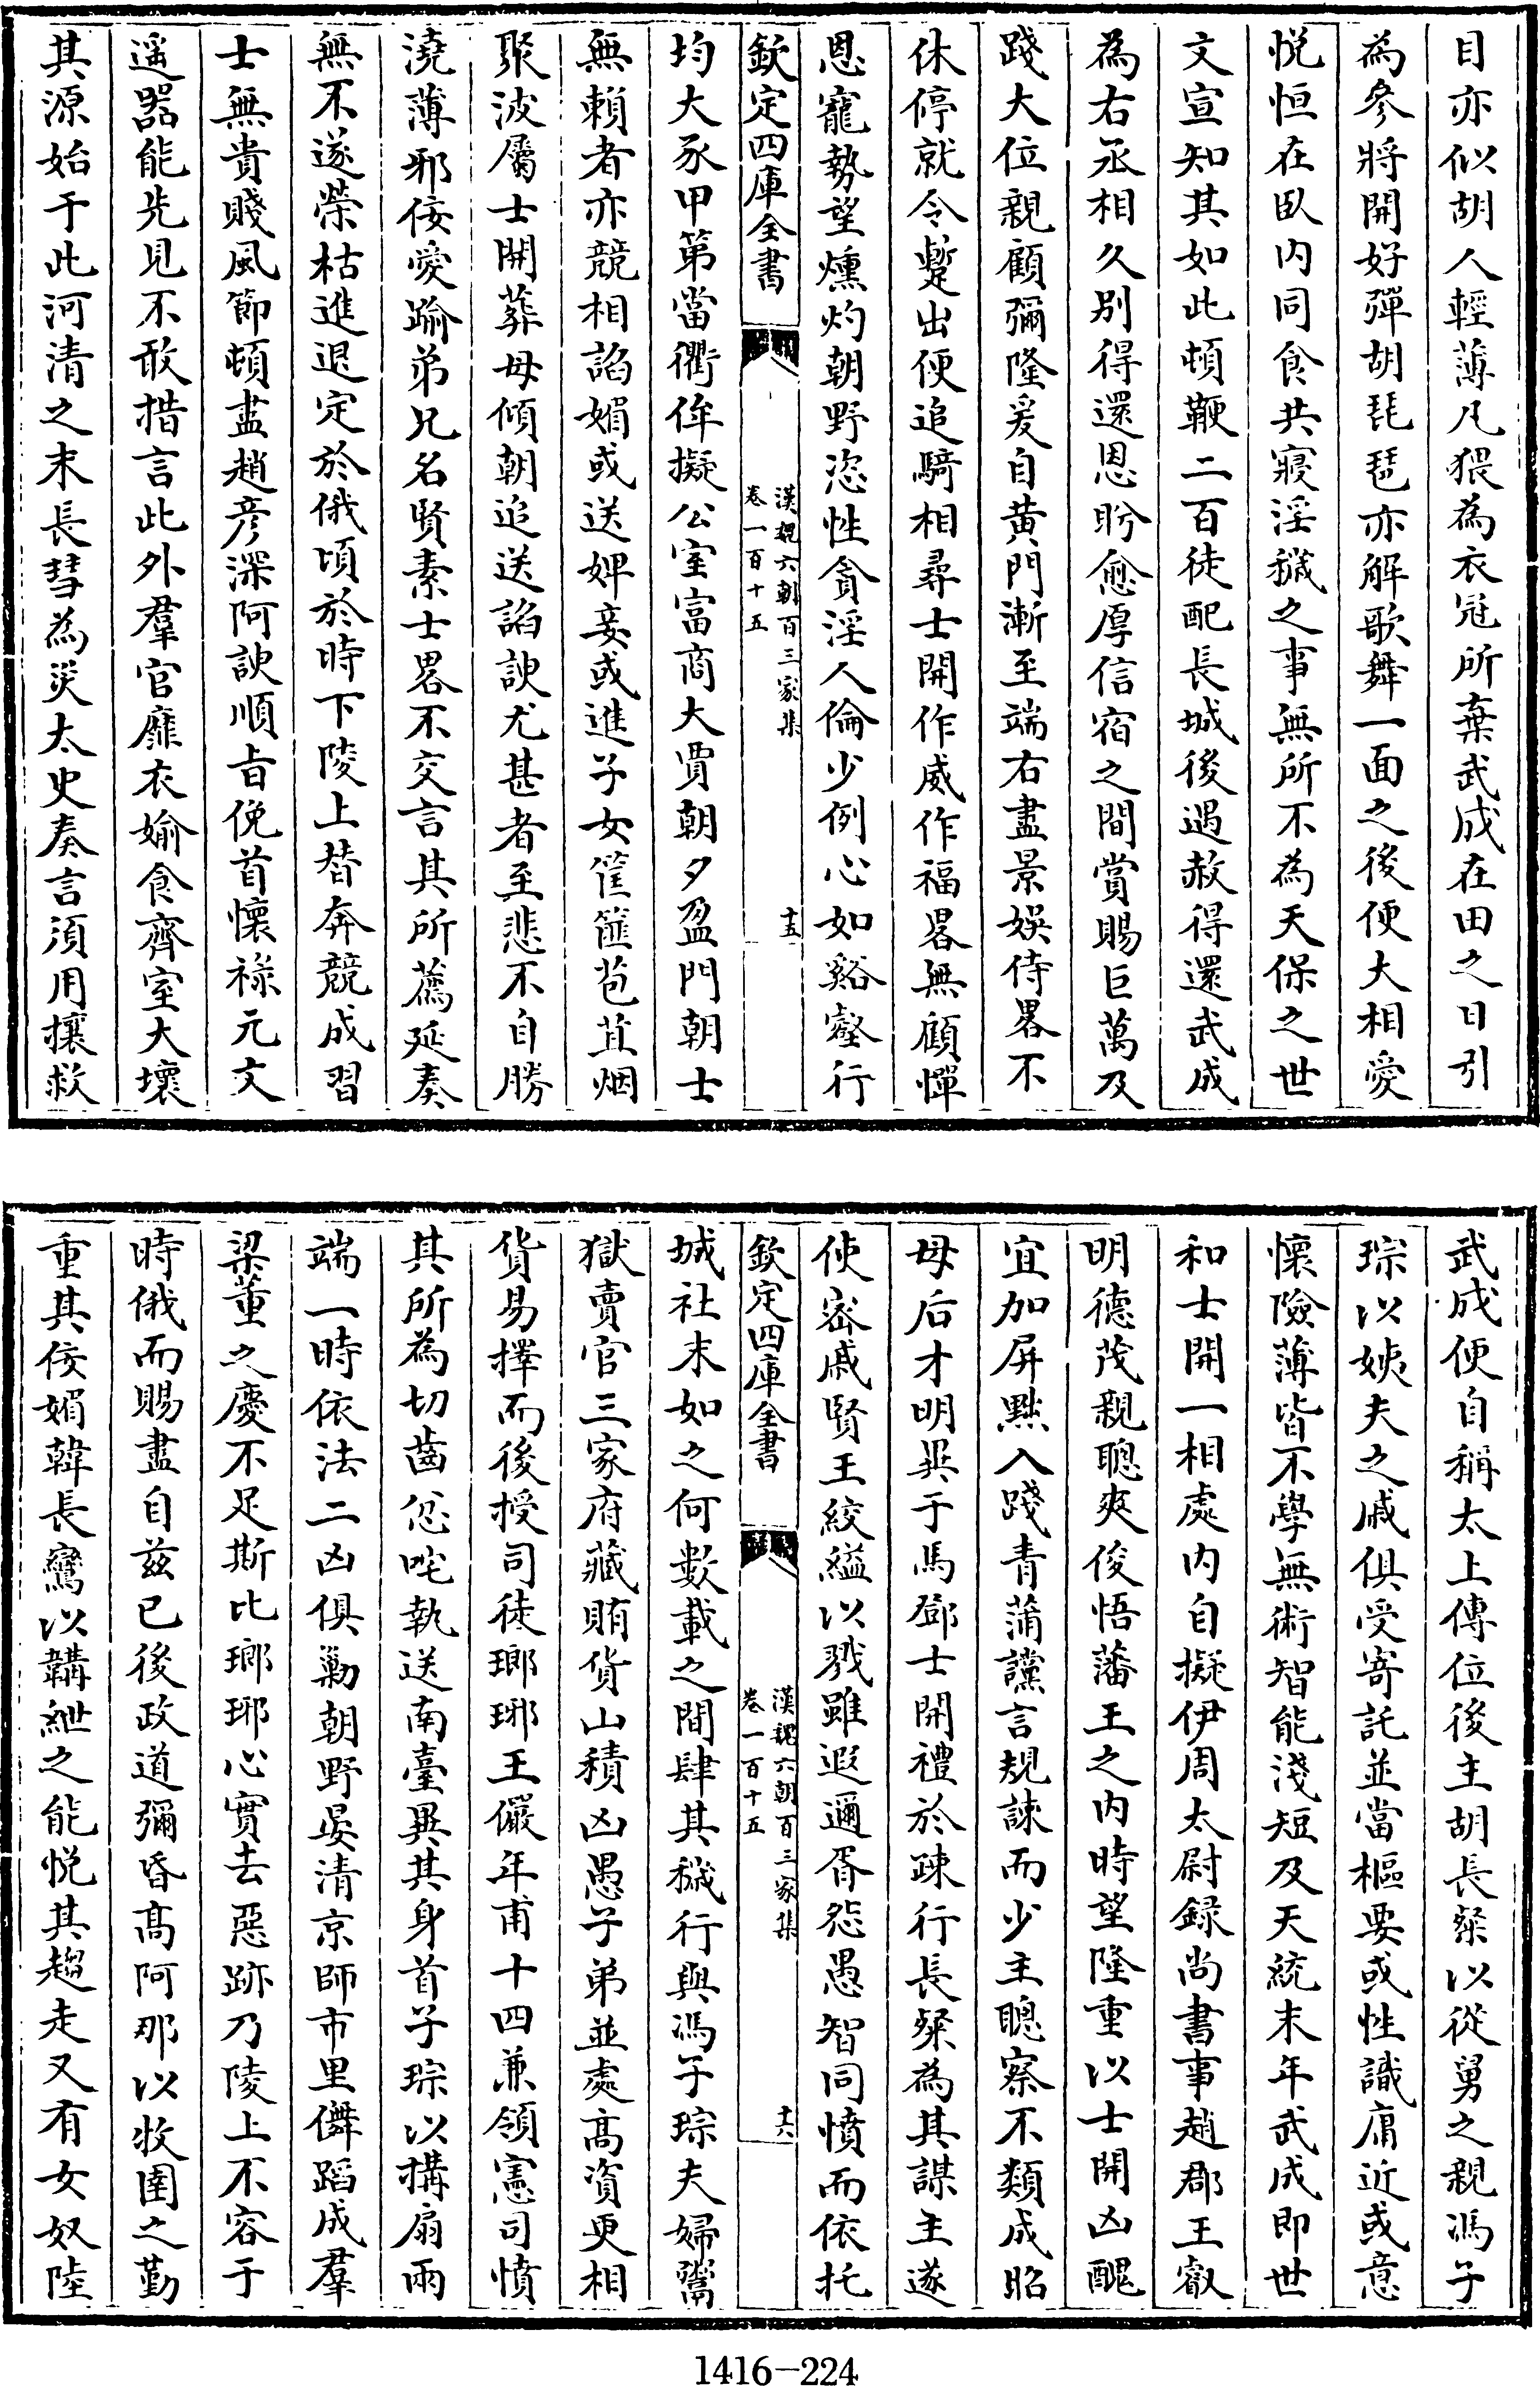 目亦似胡人輕薄凡猥為衣冠所棄武成在田之日引
為參將開好彈胡琵琶亦解歌舞一面之後便大相愛
悅恒在臥内同食共寢淫穢之事無所不為天保之世
文宣知其如此頓鞭二百徒配長城後遇赦得還武成
為右丞相久別得還恩盼愈厚信宿之間賞賜巨萬及
踐大位親顧彌隆爰自黄門漸至端右盡景娛侍畧不
休停就令蹔出便追騎相尋士開作威作福畧無顧憚
恩寵勢望燻灼朝野恣性貪淫人倫少例心如谿壑行
欽定四庫全書
漢魏六朝百三家集
卷一百十五
十五
均大豕甲第當衢侔擬公室富商大賈朝夕盈門朝士
無賴者亦競相諂媚或送婢妾或進子女筐篚苞苴烟
聚波屬士開葬母傾朝追送諂諛尤甚者至悲不自勝
澆薄邪佞愛踰弟兄名賢素士畧不交言其所薦延奏
無不遂榮枯進退定於俄頃於時下陵上替奔競成習
士無貴賤風節頓盡趙彦深阿諛順旨俛首懷祿元文
遥器能先見不敢措言此外羣官靡衣媮食齊室大壞
其源始于此河清之末長彗為災太史奏言須用攘救
武成便自稱太上傳位後主胡長粲以從舅之親馮子
琮以姨夫之戚俱受寄託並當樞要或性識庸近或意
懷險薄皆不學無術智能淺短及天統末年武成即世
和士開一相處内自擬伊周太尉録尚書事趙郡王叡
明德茂親聰爽俊悟藩王之内時望隆重以士開凶醜
宜加屏黜入踐青蒲讜言規諫而少主聰察不類成昭
母后才明異于馬鄧士開禮於疎行長粲為其謀主遂
使宻戚賢王絞縊以戮雖遐邇胥怨愚智同憤而依托
欽定四庫全書
漢魏六朝百三家集
卷一百十五
十六
城社末如之何數載之間肆其穢行與馮子琮夫婦鬻
獄賣官三家府藏賄貨山積凶愚子弟並處高資更相
貨易擇而後授司徒瑯琊王儼年甫十四兼領憲司憤
其所為切齒忿咤執送南臺異其身首子琮以搆扇兩
端一時依法二凶俱勦朝野晏清京師市里儛蹈成羣
梁董之慶不足斯比瑯琊心實去惡跡乃陵上不容于
時俄而賜盡自兹已後政道彌昏高阿那以牧圉之勤
重其佞媚韓長鸞以韝紲之能悅其趨走又有女奴陸
1416-224